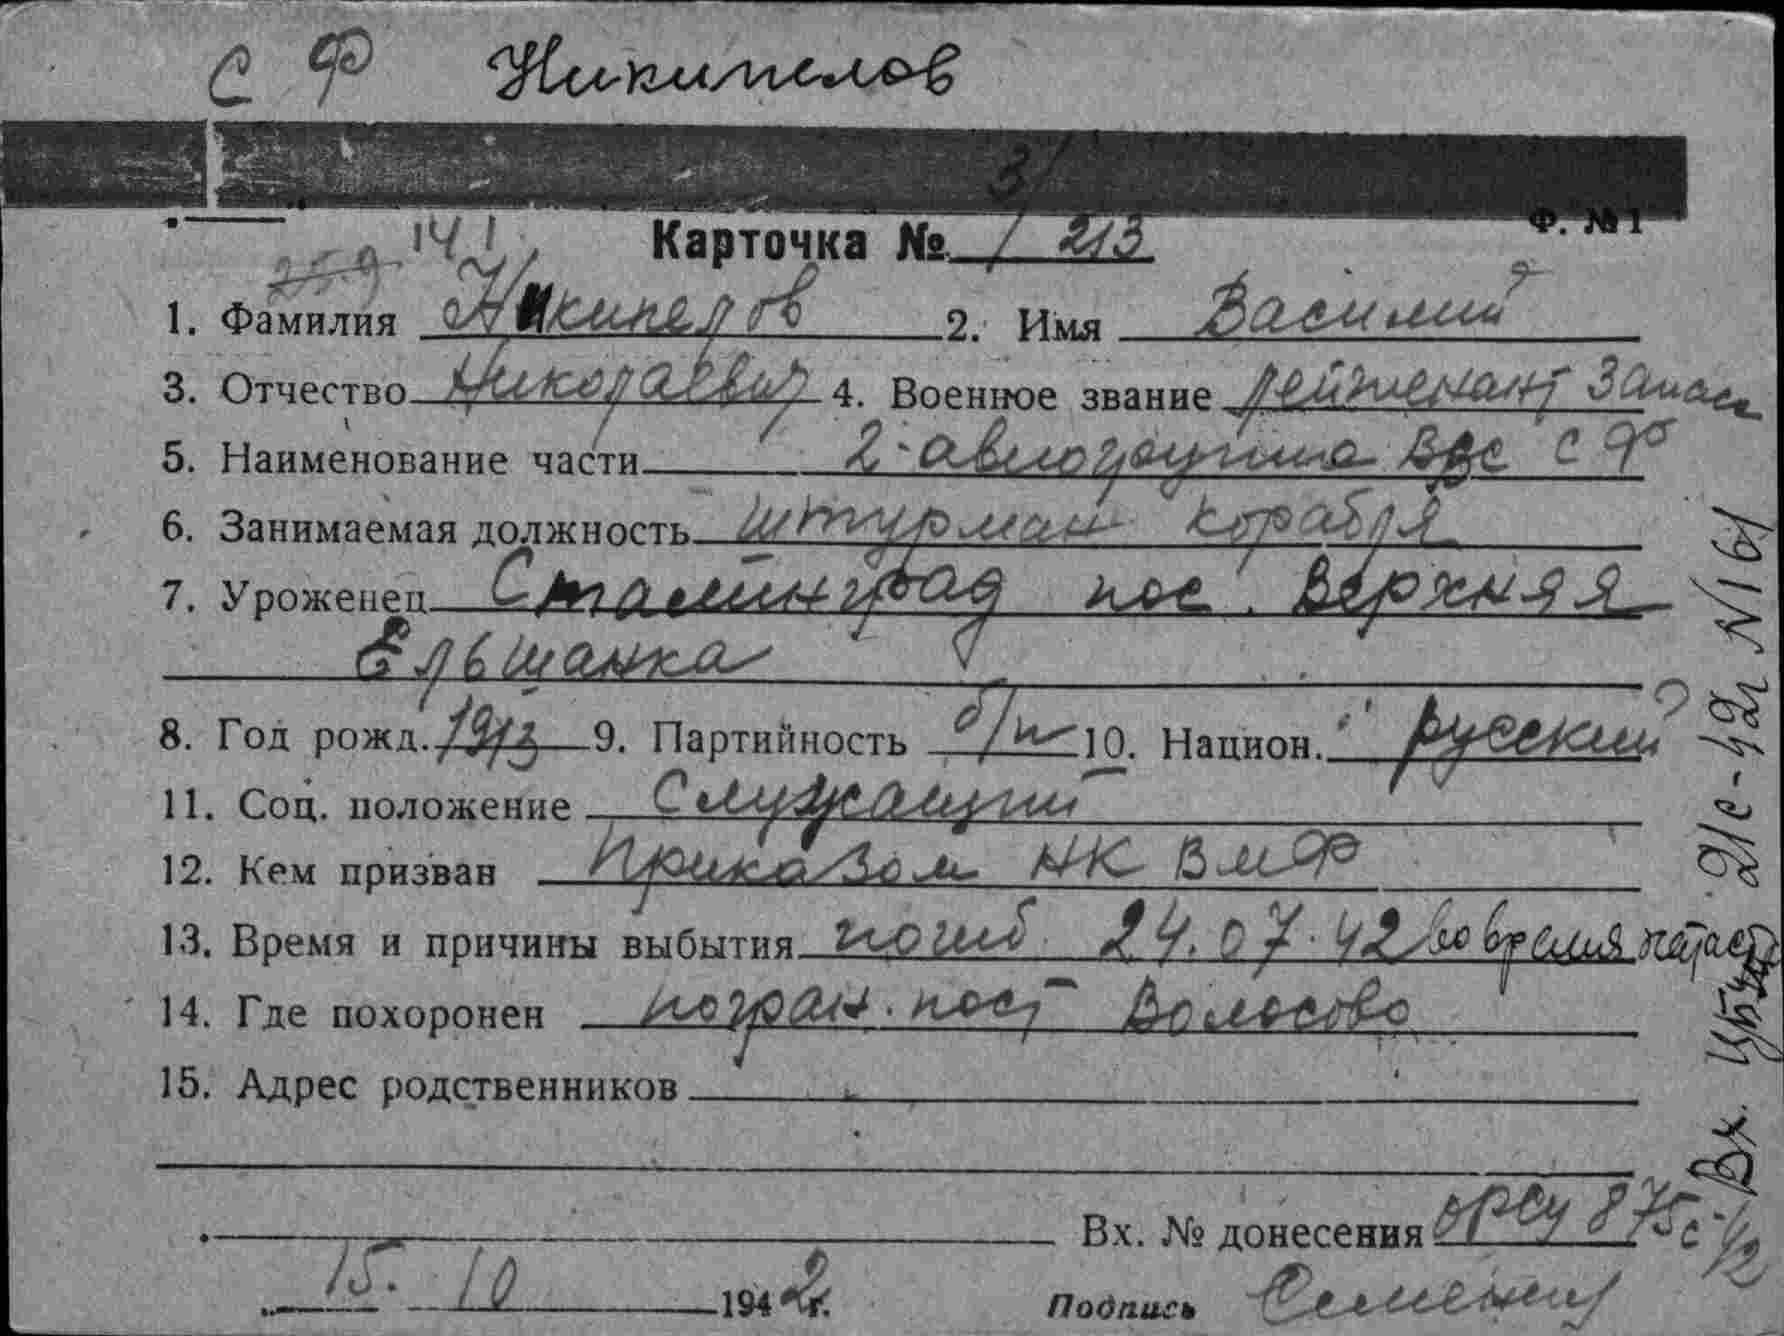 С Ф Никипелов
3/
Ф. № 1
141
259
Карточка № / 213
1. Фамилия Никипелов 2. Имя Василий
3. Отчество Николаевич 4. Военное звание лейтенант запаса
5. Наименование части 2-авиогруппа ВВС СФ
6. Занимаемая должность штурман корабля
7. Уроженец Сталинград пос. Верхняя
Ельшанка
8. Год рожд. 1913 9. Партийность б/п 10. Национ. русский
11. Соц. положение Служащий
12. Кем призван Приказом НК ВМФ
13. Время и причины выбытия погиб 24.07.42 во время катаст
14. Где похоронен погран. пост Волосово
15. Адрес родственников
Вх. № донесения 875с
15. 10 1942 г. Подпись
Вх. N 161